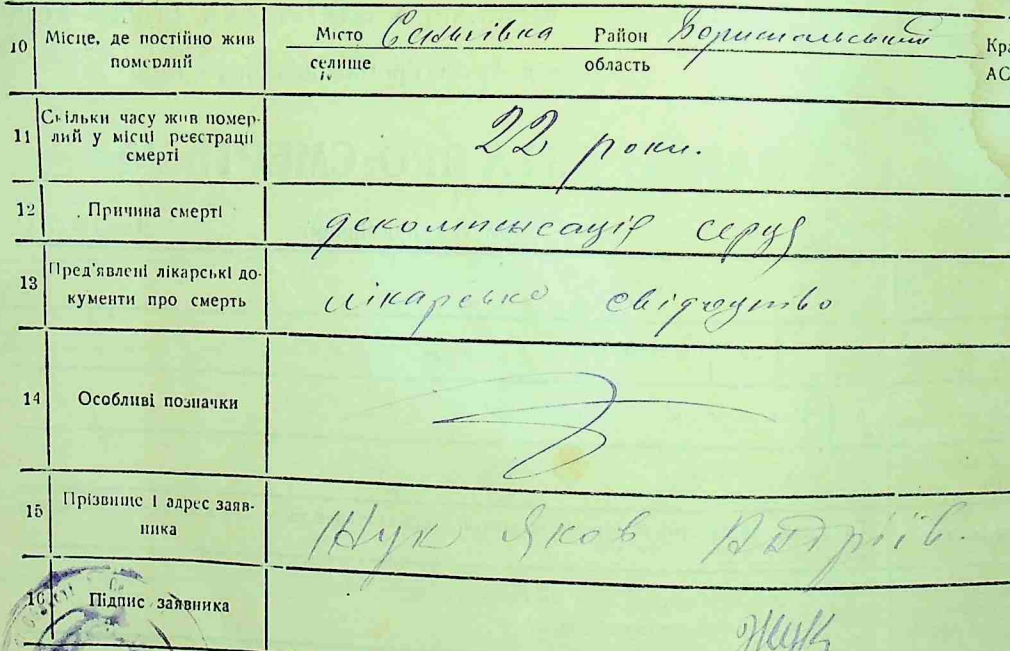 10 Місце, де постійно жив померлий Місто Сеньківка Район Бориспольський Кра
селище область АС
11 Скільки часу жив помер-
лий у місці реєстрації
смерті 22 роки.
12 Причина смерті декомпенсація серця
13 Пред'явлені лікарські до-
кументи про смерть лікарське свідоцтво
14 Особливі позначки
15 Прізвище і адрес заяв-
ника Жук Яков Андріїв.
16 Підпис заявника Жук